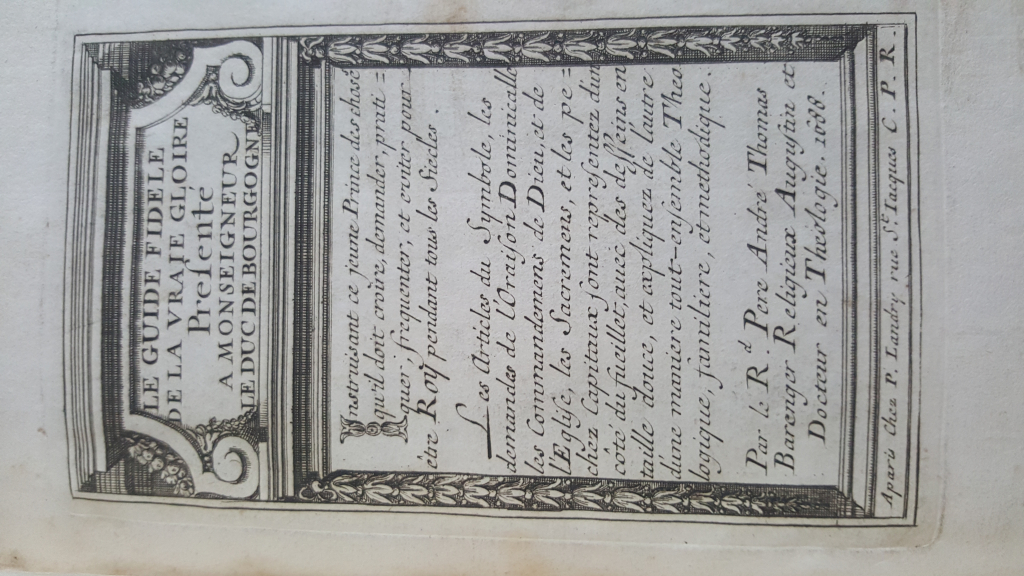 LE GUIDE FIDELLE
DE LA VRAIE GLOIRE
Presenté
A MONSEIGNEUR
LE DUC DE BOURGOGNE
Instruisant ce jeune Prince des choses
qu'il doit croire, demander, prati =
quer, frequenter, et eviter pour
être Roy pendant tous les Siecles.
Les Articles du Symbole, les
demandes de l'Oraison Dominicalle
les Commandemens de Dieu, et de
l'Eglise, les Sacremens, et les pe =
chez Capitaux sont representez d'un
côté du fueillet, auec des desseins en
taille douce, et expliquez de l'autre
d'une maniere tout-ensemble Theo
logique, familiere, et methodique.
Par le R.d Pere André Thomas
Barenger Religieux Augustin et
Docteur en Theologie. 1688.
Aparis Chez P. Landry rue St. Iacques C. P. R.